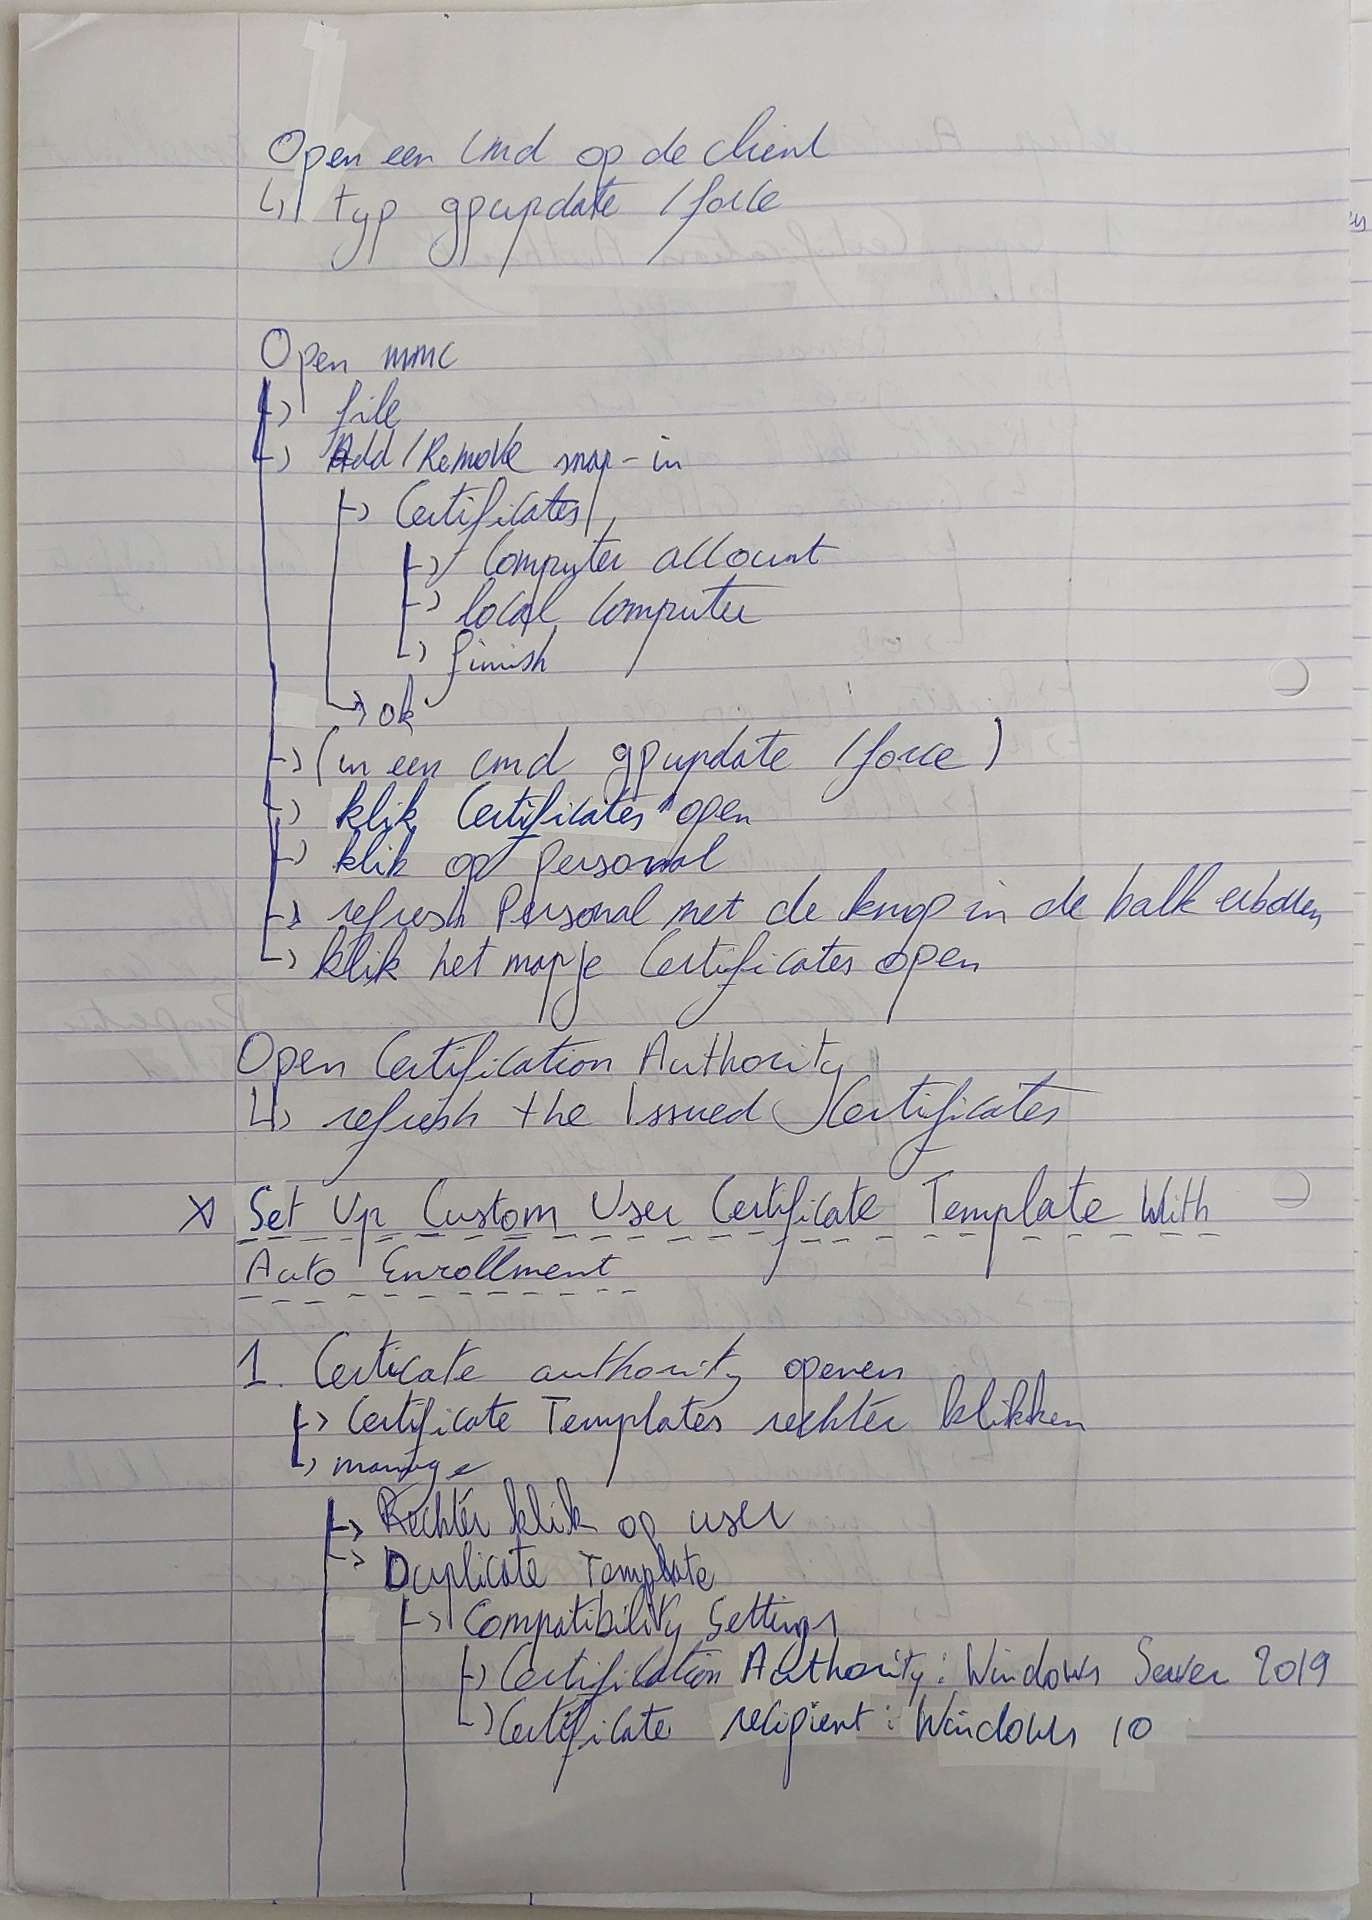 Open een cmd op de client
↳ typ gpupdate /force
Open mmc
↳ file
↳ Add/Remove snap-in
↳ Certificates
↳ Computer account
↳ local computer
↳ finish
→ ok
↳ (in een cmd gpupdate /force)
↳ klik Certificates open
↳ klik op personal
↳ refresh Personal met de knop in de balk erboven
↳ klik het mapje Certificates open
Open Certification Authority
↳ refresh the Issued Certificates
Set Up Custom User Certificate Template With
Auto Enrollment
1. Certicate authority openen
↳ Certificate Templates rechter klikken
↳ manage
↳ Rechter klik op user
↳ Duplicate Template
↳ Compatibility Settings
↳ Certification Authority: Windows Server 2019
↳ Certificate recipient: Windows 10